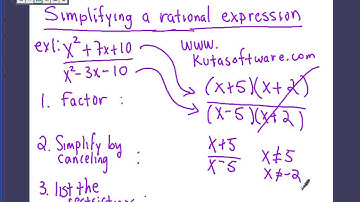 Simplifying a rational expression
ex1: x² + 7x + 10 / x² - 3x - 10
www.
Kutasoftware.com
(x+5)(x+2) / (x-5)(x+2)
1. Factor :
2. Simplify by
canceling :
x+5 / x-5
x ≠ 5
x ≠ -2
3. list the